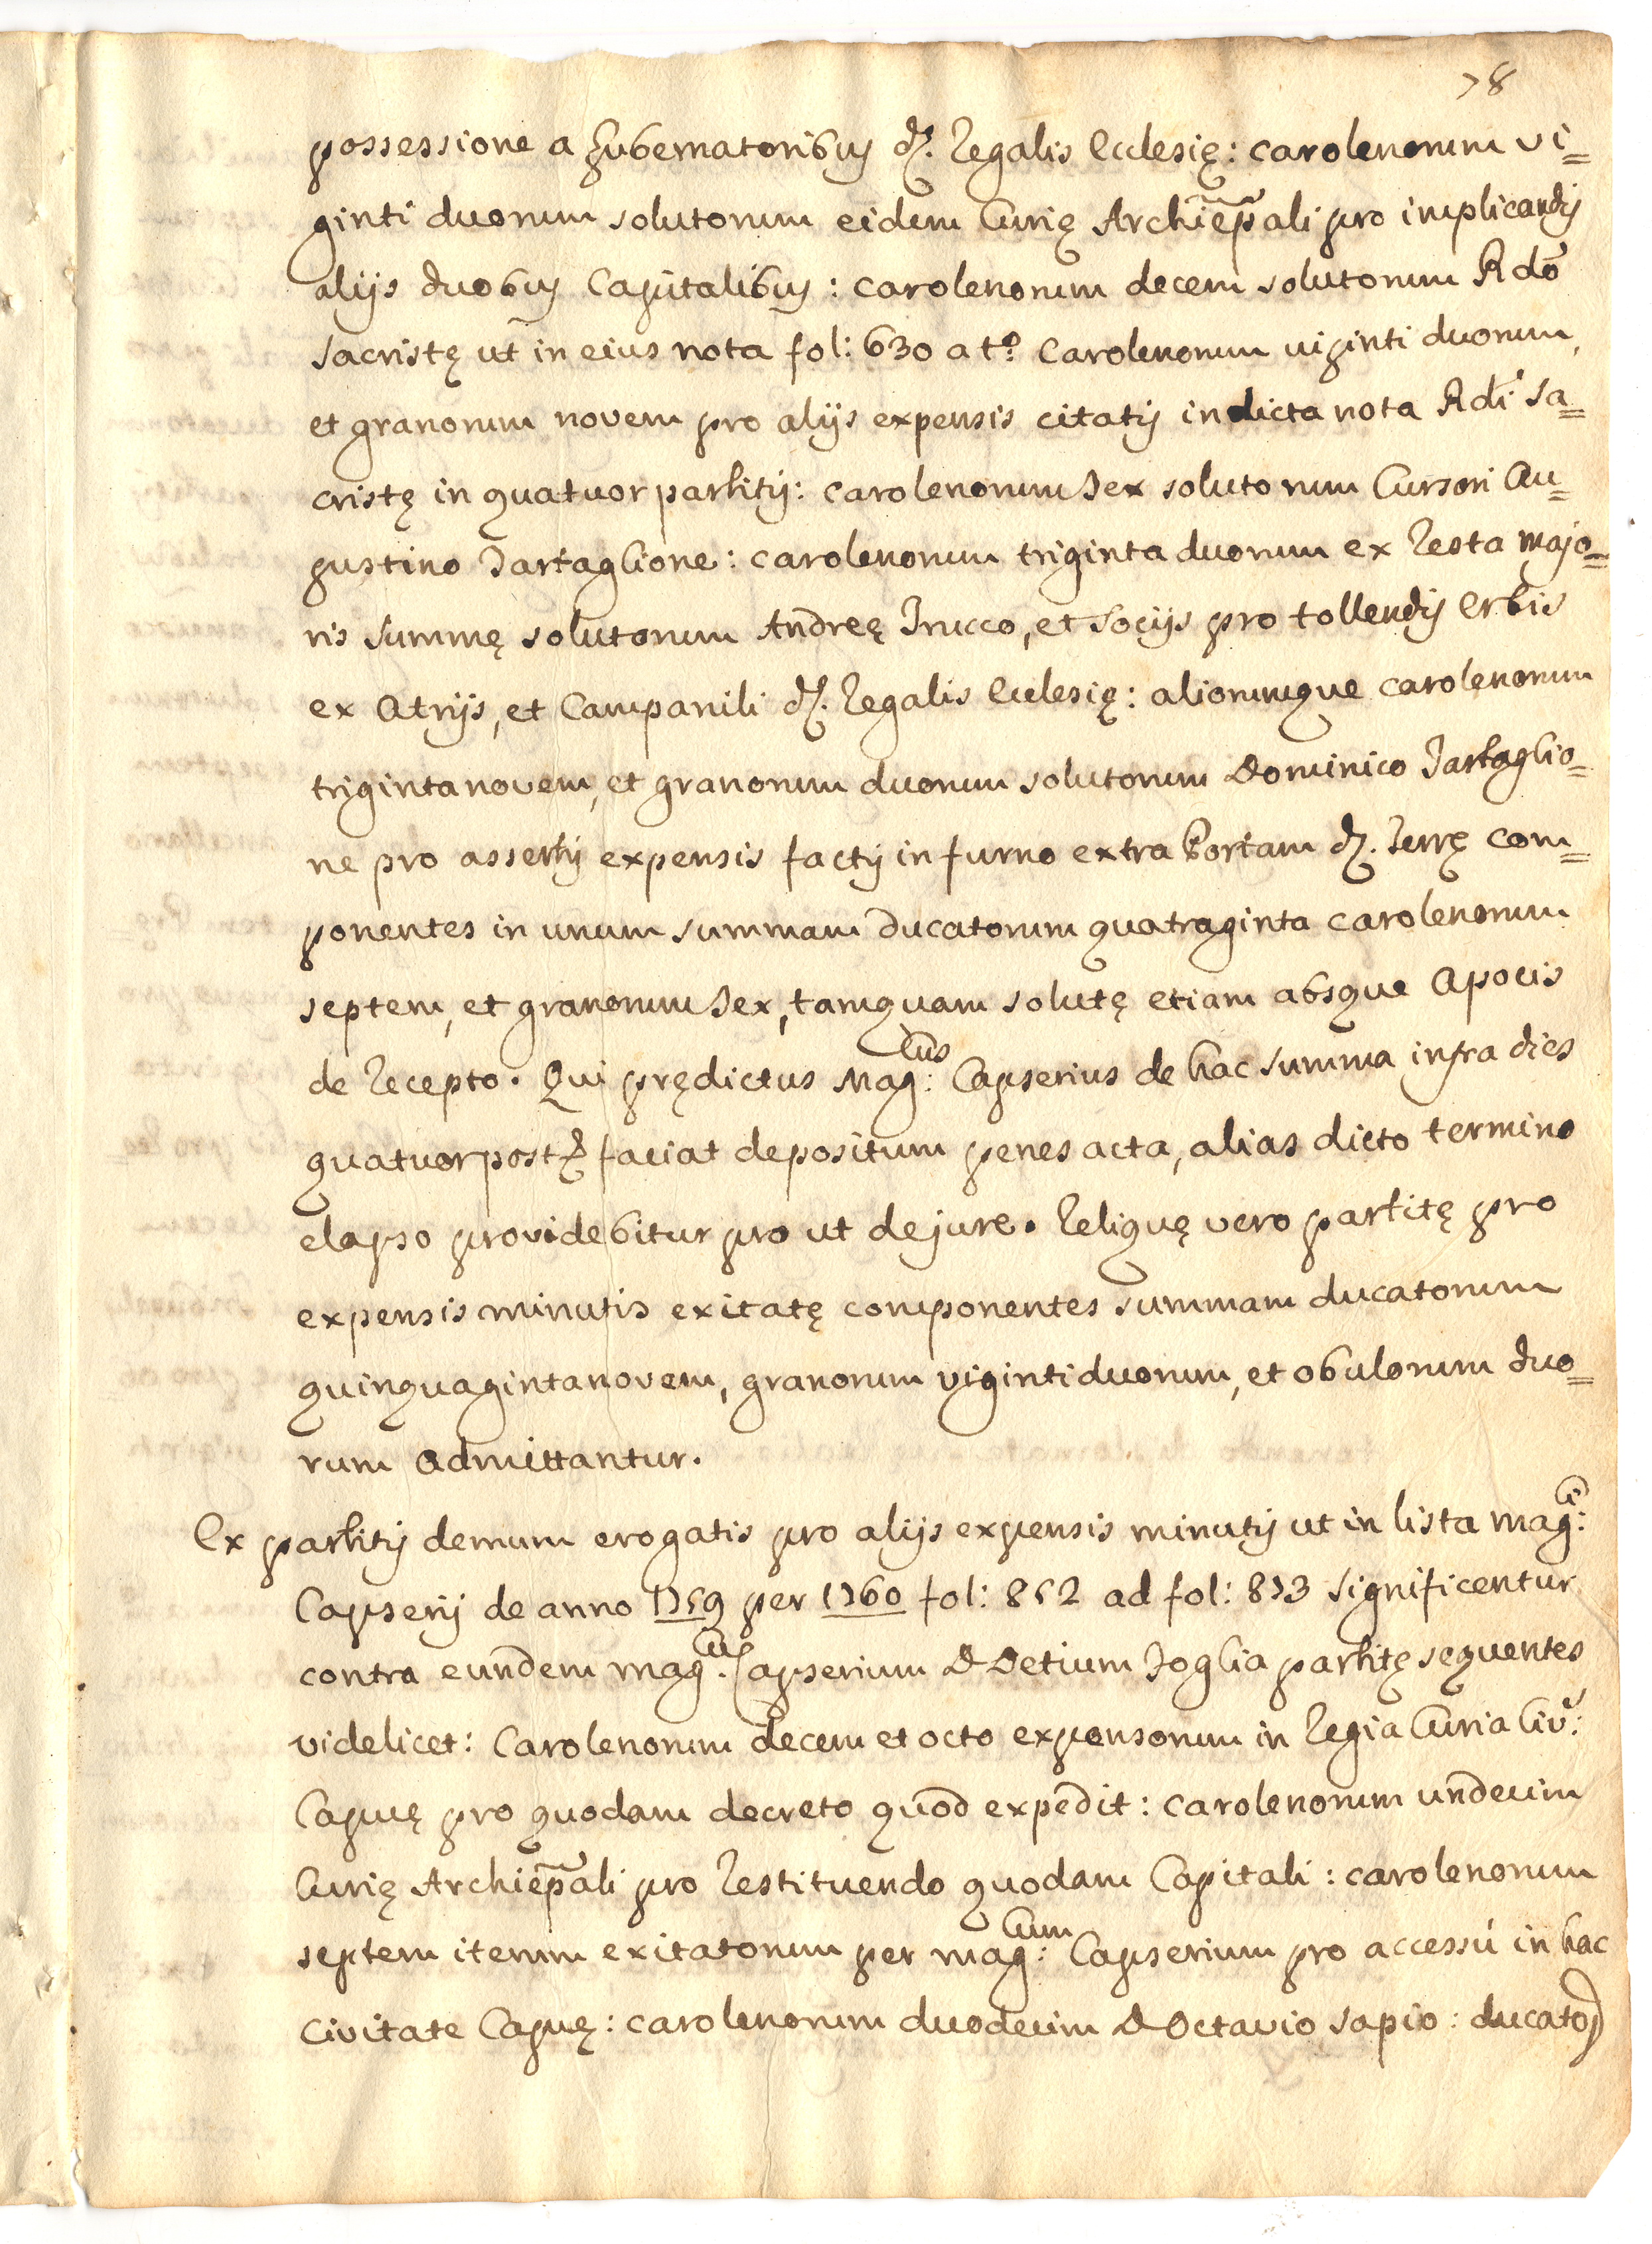 78
possessione a gubernatoribus d.ę Regalis Ecclesię: carolenorum vi=
ginti duorum solutorum eidem Curię Archiep̃ali pro implicandis
alijs duobus Capitalibus: carolenorum decem solutorum Rdo
sacristę ut in eius nota fol: 630 a t.o Carolenorum viginti duorum,
et granorum novem pro alijs expensis citatis in dicta nota Rdi Sa=
cristę in quatuor partitis: carolenorum sex solutorum Cursori Au=
gustino Tartaglione: carolenorum triginta duorum ex resta majo=
ris summę solutorum Andreę Trucco, et Socijs pro tollendis erbis
ex Atrijs, et Campanili d.ę Regalis Ecclesię: aliorumque carolenorum
triginta novem, et granorum duorum solutorum Dominico Tartaglio=
ne pro assertis expensis factis in furno extra Portam d.ę Terrę com=
ponentes in unum summam ducatorum quatraginta carolenorum
septem, et granorum sex, tamquam solutę etiam absque Apocis
de recepto. Qui prędictus Mag:cus Capserius de hac summa infra dies
quatuor post faciat depositum penes acta, alias dicto termino
elapso providebitur pro ut de jure. Reliquę vero partitę pro
expensis minutis exitatę componentes summam ducatorum
quinquaginta novem, granorum viginti duorum, et obulorum duo=
rum admittantur.
Ex partitis demum erogatis pro alijs expensis minutis ut in lista mag:ci
Capserij de anno 1759 per 1760 fol: 852 ad fol: 873 significentur
contra eundem mag:cum Capserium D Detium Toglia partitę sequentes
videlicet: Carolenorum decem et octo expensorum in Regia Curia Civ:
Capuę pro quodam decreto quod expedit: carolenorum undecim
Curię Archiep̃ali pro restituendo quodam Capitali: carolenorum
septem iterum exitatorum per mag:cum Capserium pro accessú in hac
Civitate Capuę: carolenorum duodecim D Octavio Sapio: ducator